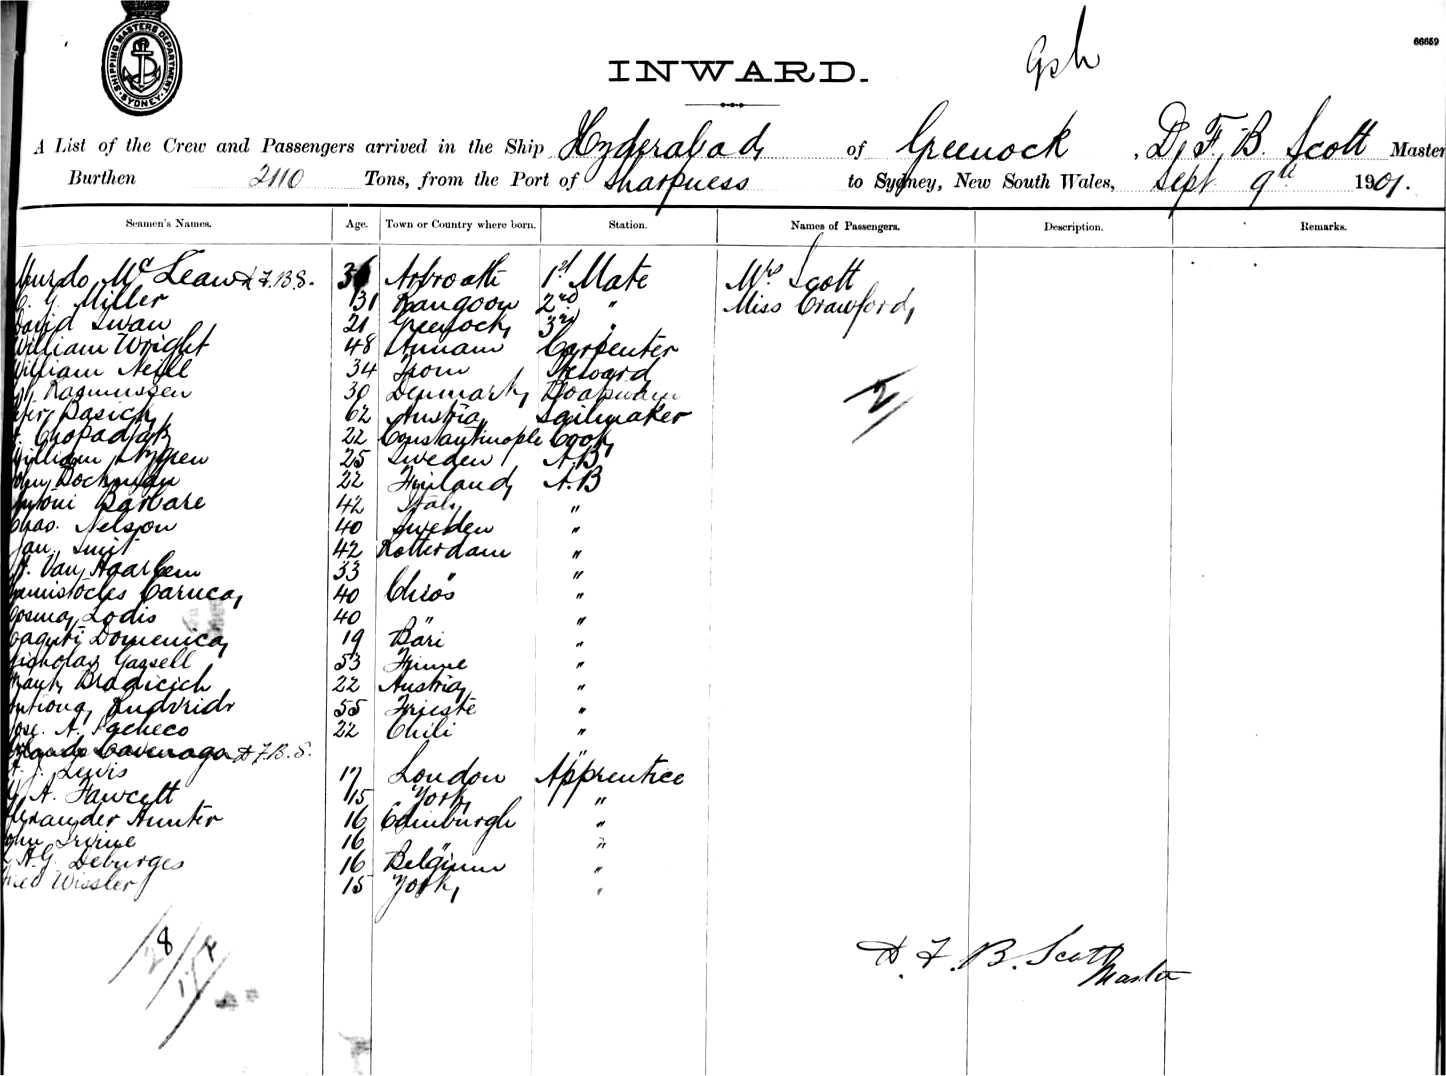 SHIPPING MASTERS DEPARTMENT SYDNEY
66659
INWARD.
A List of the Crew and Passengers arrived in the Ship Hyderabad of Greenock, D. F. B. Scott Master
Burthen 2110 Tons, from the Port of Sharpness to Sydney, New South Wales, Sept 9th 1901.
Seamen's Names. Age. Town or Country where born. Station. Names of Passengers. Description. Remarks.
Murdo McLean D.F.B.S. 36 Arbroath 1st Mate Mrs Scott
Miller 31 Rangoon 2nd " Miss Crawford
David Swan 21 Greenock 3rd "
William Wright 48 Annan Carpenter
William Neill 34 Troon Steward
Rasmussen 30 Denmark Boatswain
Basich 62 Austria Sailmaker
22 Constantinople Cook
William 25 Sweden A.B
John Bockman 22 Finland A.B
Antoni Barbare 42 Italy "
Chas. Nelson 40 Sweden "
Jan Smit 42 Rotterdam "
Van Haarlem 33 " "
Caruca 40 Chios "
Cosma Lodis 40 " "
Domenica 19 Bari "
Nicholas 53 Fiume "
Frank Bradicich 22 Austria "
55 Trieste "
Jose. A. Pacheco 22 Chili "
Cavenago D.F.B.S. "
Lewis 17 London Apprentice
A. Fawcett 15 York "
Alexander Hunter 16 Edinburgh "
John Irvine 16 " "
A.G. Deburges 16 Belgium "
Wissler 15 York "
2
28
D. F. B. Scott
Master